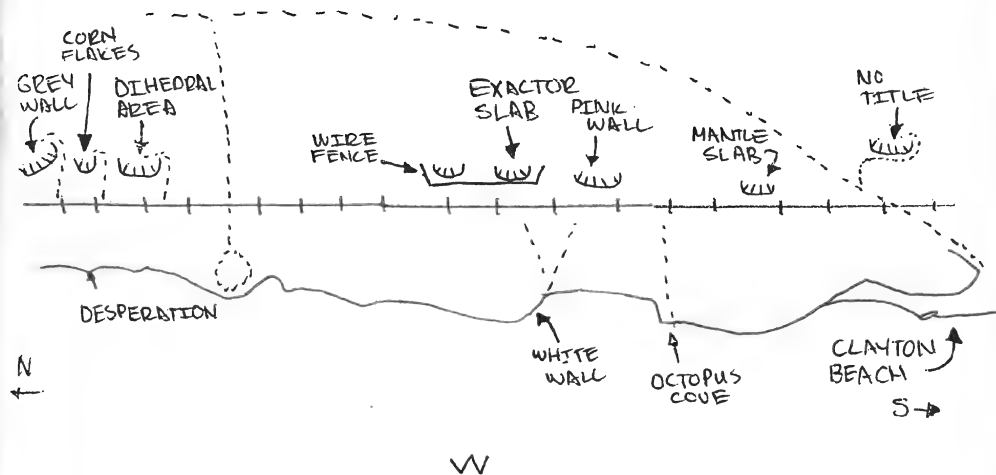 CORN
FLAKES
GREY
WALL
DIHEDRAL
AREA
WIRE
FENCE
EXACTOR
SLAB
PINK
WALL
MANTLE
SLAB
NO
TITLE
DESPERATION
WHITE
WALL
OCTOPUS
COVE
CLAYTON
BEACH
N
S
W